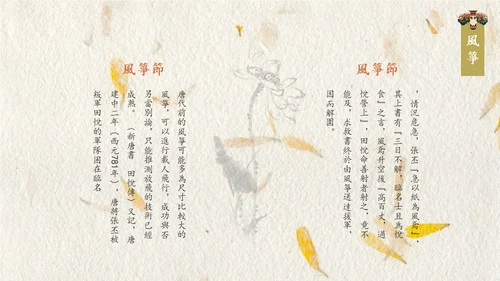 風箏
風箏節
唐代前的風箏可能多為尺寸比較大的
風箏，可以進行載人飛行，成功與否
另當別論，只能推測放飛的技術已經
成熟。（新唐書 田悅傳）又記，唐
建中二年（西元781年），唐將張丕被
叛軍田悅的軍隊困在臨名
風箏節
，情況危急，張丕「急以紙為風鳶」，
其上書有「三日不解，臨名士且為悅
食」之言，風鳶升空後「高百丈，過
悅營上」，田悅命善射者射之，竟不
能及，求救書終於由風箏送達援軍，
因而解圍。